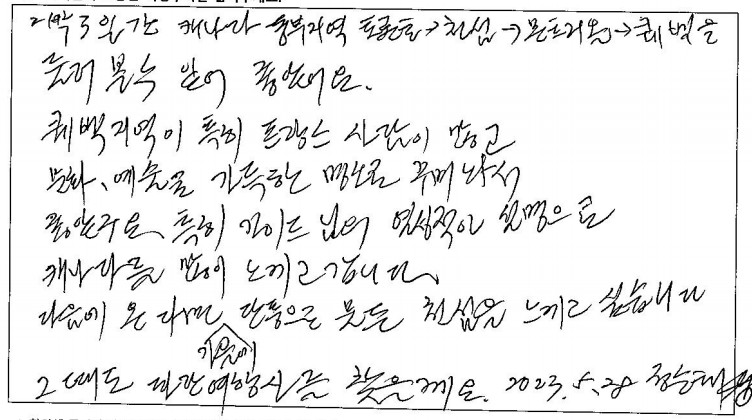 4박5일간 캐나다 동부지역 토론토→천섬→몬트리올→퀘벡을
둘러 볼수 있어 좋았어요.
퀘벡지역이 특히 프랑스 사람이 많고
문화, 예술을 가득한 명소로 꾸며 놔서
좋았구요, 특히 가이드 님의 열성적인 설명으로
캐나다를 많이 느끼고 갑니다.
다음에 온다면 가을에 단풍으로 물든 천섬을 느끼고 싶습니다
그때도 여행사를 찾을께요. 2023. 5. 28